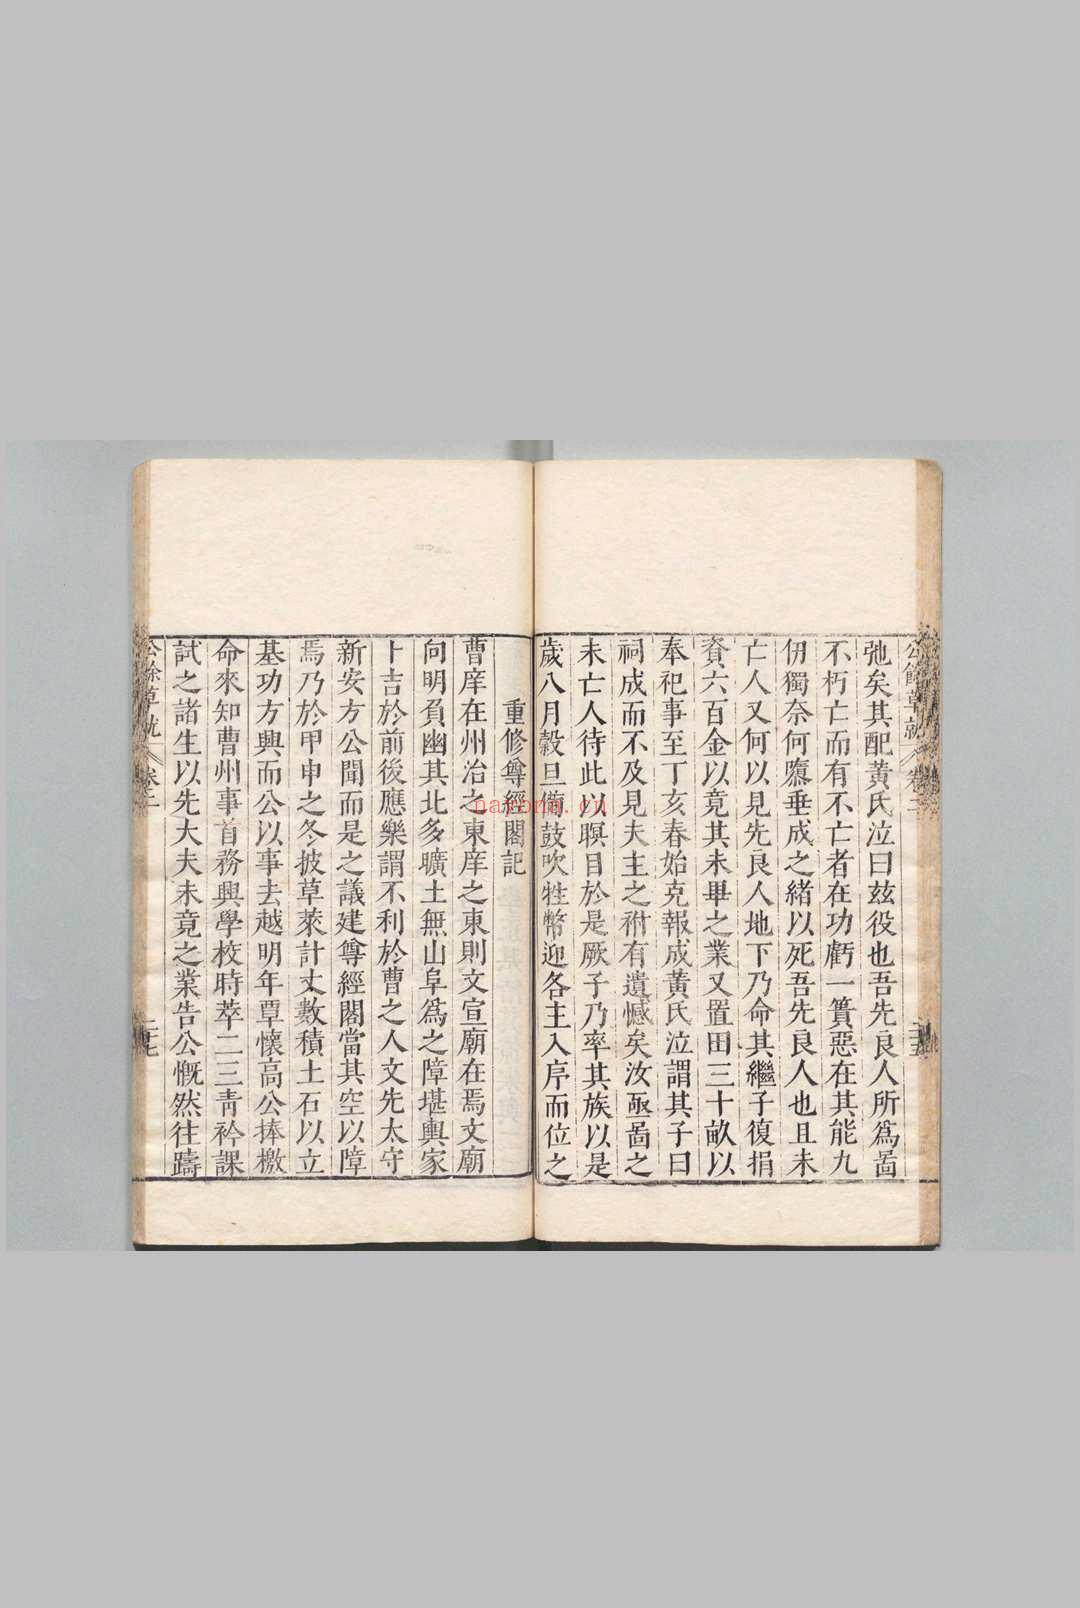 公餘草就
卷二
弛矣其配黃氏泣曰茲役也吾先良人所爲啚
不朽亡而有不亡者在功虧一簣惡在其能九
仞獨柰何隳垂成之緒以死吾先良人也且未
亡人又何以見先良人地下乃命其繼子復捐
資六百金以竟其未畢之業又置田三十畝以
奉祀事至丁亥春始克報成黃氏泣謂其子曰
祠成而不及見夫主之祔有遺憾矣汝亟啚之
未亡人待此以暝目於是厥子乃率其族以是
歲八月榖旦俻鼓吹牲幣迎各主入序而位之
重修尊經閣記
曹庠在州治之東庠之東則文宣廟在焉文廟
向明負幽其北多曠土無山阜爲之障堪輿家
卜吉於前後應樂謂不利於曹之人文先太守
新安方公聞而是之議建尊經閣當其空以障
焉乃於甲申之冬披草萊計丈數積土石以立
基功方興而公以事去越明年覃懷高公捧檄
命來知曹州事首務興學校時萃二三靑衿課
試之諸生以先大夫未竟之業告公慨然往躊
公餘草就
卷二
二七
nayona.cn